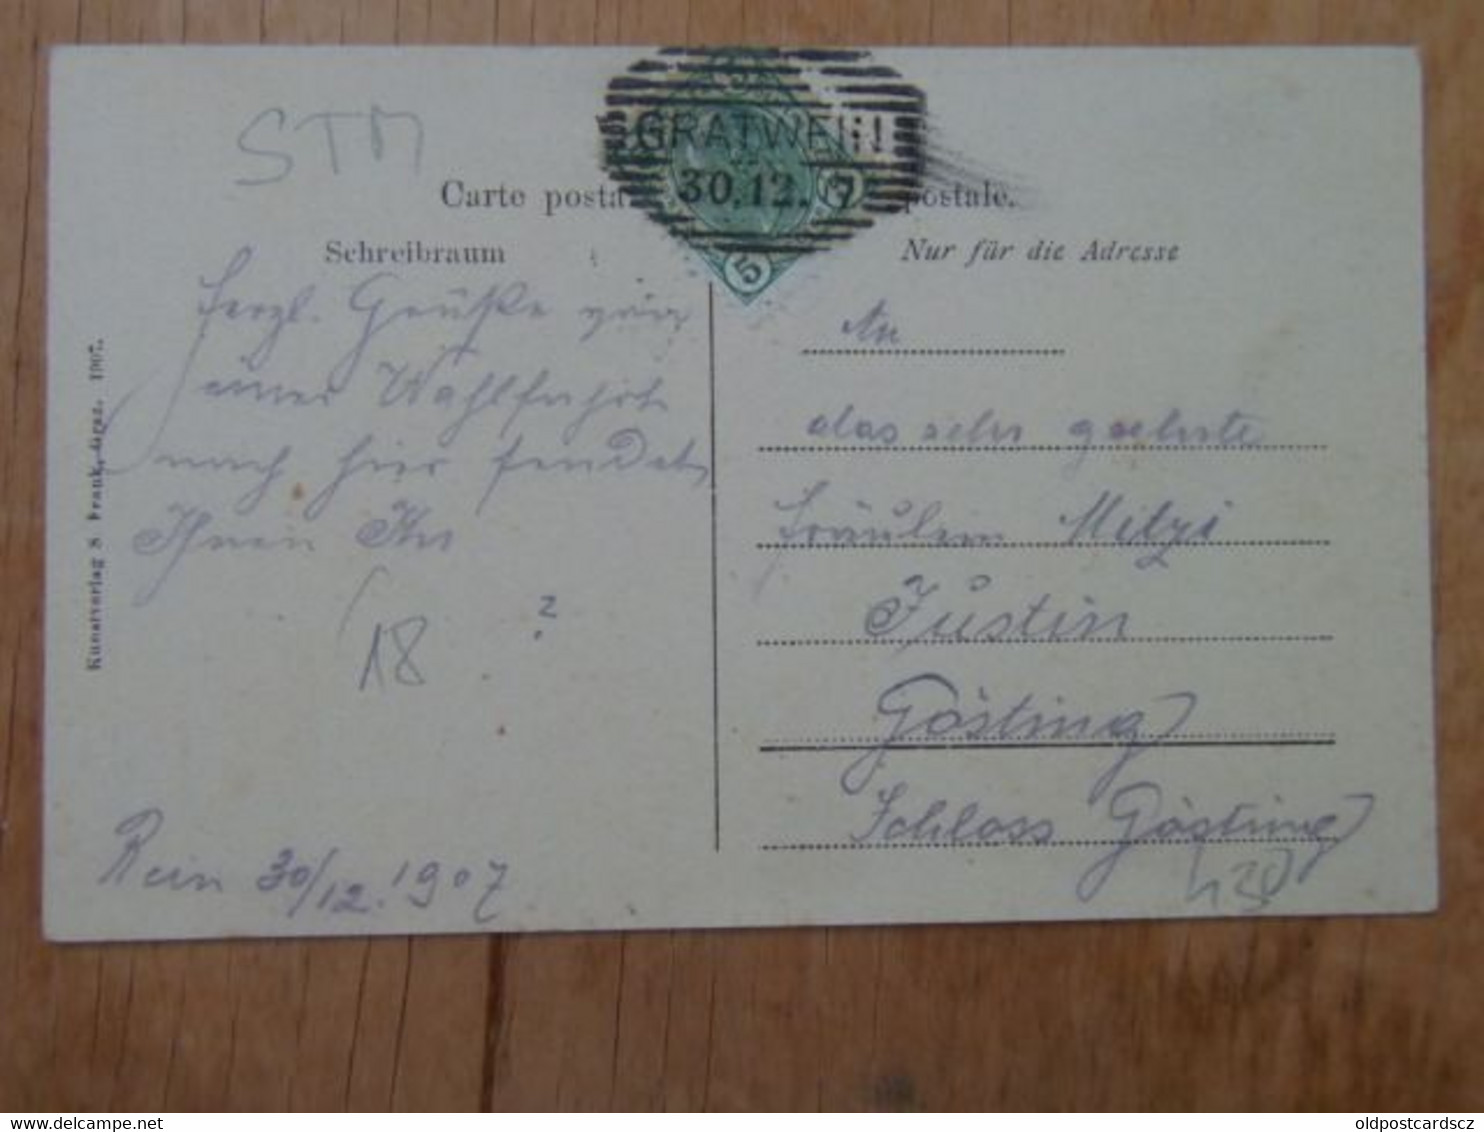 STM
GRATWEIN
30.12. 7
5
Carte posta postale.
Schreibraum
Nur für die Adresse
Herzl. Grüße von
einer Wahlfahrt
nach hier sendet
Ihnen Ihr
?
18
Rein 30/12. 1907
An
das sehr geehrte
Fräulein Mitzi
Justin
Gösting
Schloss Gösting
430
Kunstverlag S Frank, Graz. 1907.
oldpostcardscz